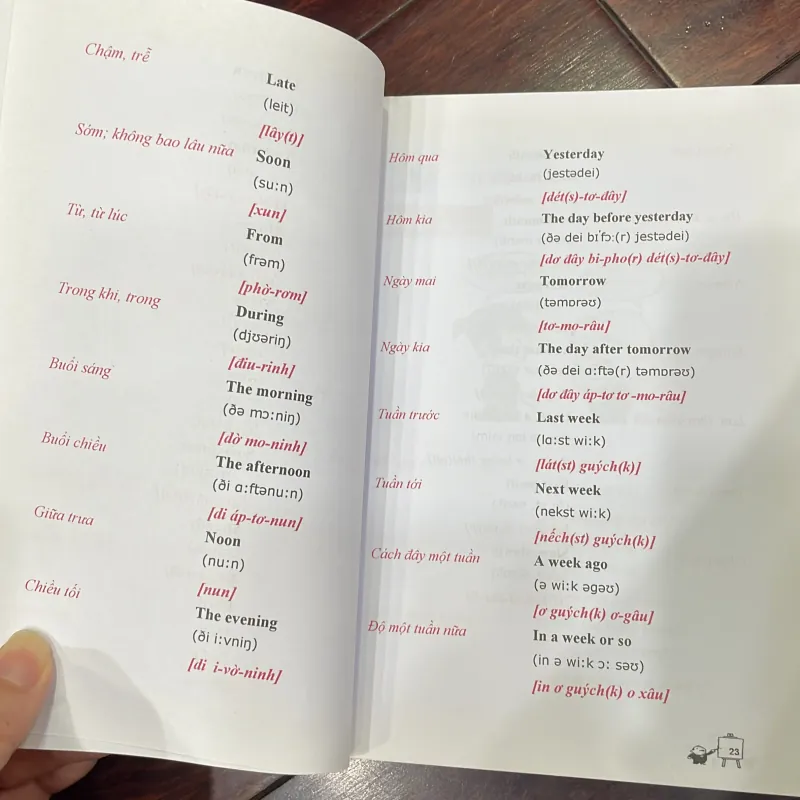 Chậm, trễ
Late
(leit)
[lây(t)]
Sớm; không bao lâu nữa
Soon
(suːn)
[xun]
Từ, từ lúc
From
(frəm)
[phờ-rơm]
Trong khi, trong
During
(djʊəriŋ)
[điu-rinh]
Buổi sáng
The morning
(ðə mɔːniŋ)
[dờ mo-ninh]
Buổi chiều
The afternoon
(ði ɑːftənuːn)
[di áp-tơ-nun]
Giữa trưa
Noon
(nuːn)
[nun]
Chiều tối
The evening
(ði iːvniŋ)
[di i-vờ-ninh]
Hôm qua
Yesterday
(jestədei)
[dét(s)-tơ-đây]
Hôm kia
The day before yesterday
(ðə dei bɪˈfɔː(r) jestədei)
[dơ đây bi-pho(r) dét(s)-tơ-đây]
Ngày mai
Tomorrow
(təmɒrəʊ)
[tơ-mo-râu]
Ngày kia
The day after tomorrow
(ðə dei ɑːftə(r) təmɒrəʊ)
[dơ đây áp-tơ tơ-mo-râu]
Tuần trước
Last week
(lɑːst wiːk)
[lát(st) guých(k)]
Tuần tới
Next week
(nekst wiːk)
[nếch(st) guých(k)]
Cách đây một tuần
A week ago
(ə wiːk əgəʊ)
[ơ guých(k) ơ-gâu]
Độ một tuần nữa
In a week or so
(in ə wiːk ɔː səʊ)
[in ơ guých(k) o xâu]
23